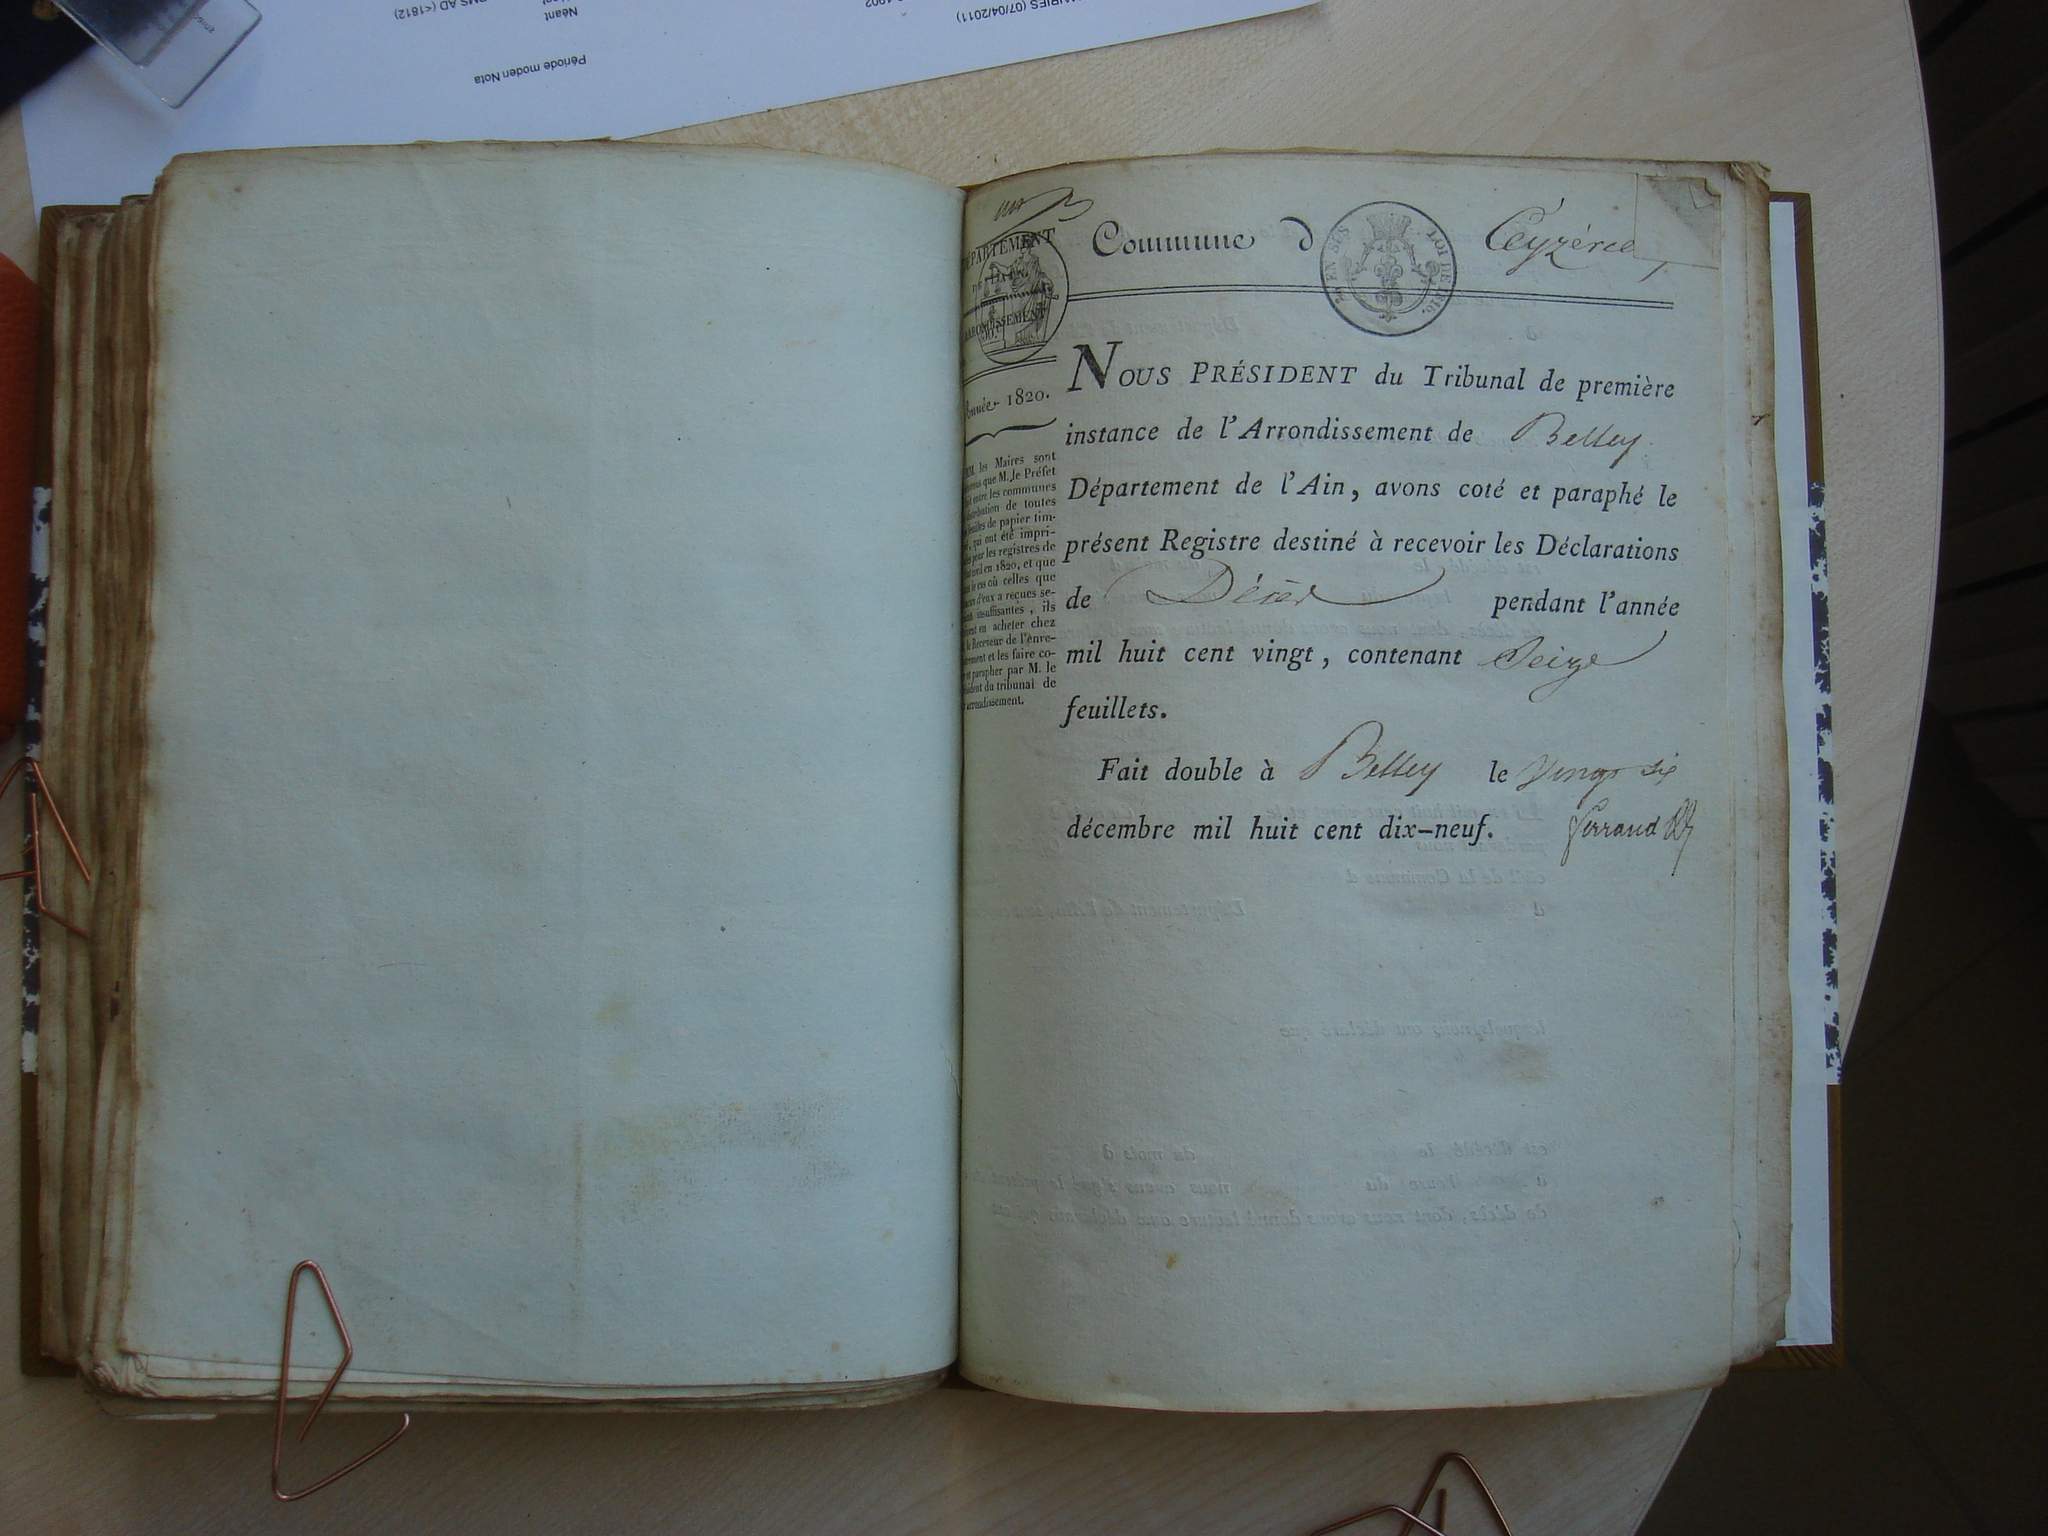 Période moden Nota
Néant
AIRIES (07/04/2011)
MS AD (<1812)
1902
Commune d Ceyzérieu
EN SUS LOI DE 1816.
DÉPARTEMENT
DE L'AIN.
ARRONDISSEMENT
Année 1820.
MM. les Maires sont
que M. le Préfet
entre les communes
distribution de toutes
feuilles de papier tim-
, qui ont été impri-
pour les registres de
civil en 1820, et que
le cas où celles que
d'eux a reçues se-
insuffisantes, ils
en acheter chez
le Receveur de l'enre-
et les faire co-
et parapher par M. le
Président du tribunal de
arrondissement.
NOUS PRÉSIDENT du Tribunal de première
instance de l'Arrondissement de Belley
Département de l'Ain, avons coté et paraphé le
présent Registre destiné à recevoir les Déclarations
de Décès pendant l'année
mil huit cent vingt, contenant Seize
feuillets.
Fait double à Belley le vingt six
décembre mil huit cent dix-neuf. Ferrand